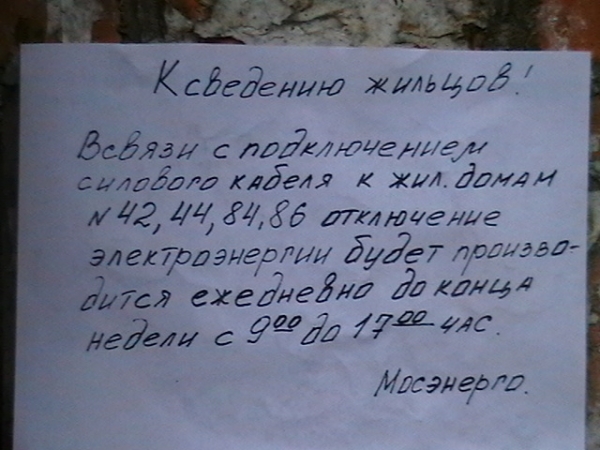 К сведению жильцов!
Всвязи с подключением
силового кабеля к жил. домам
N 42, 44, 84, 86 отключение
электроэнергии будет произво-
дится ежедневно до конца
недели с 9⁰⁰ до 17⁰⁰ час.
Мосэнерго.